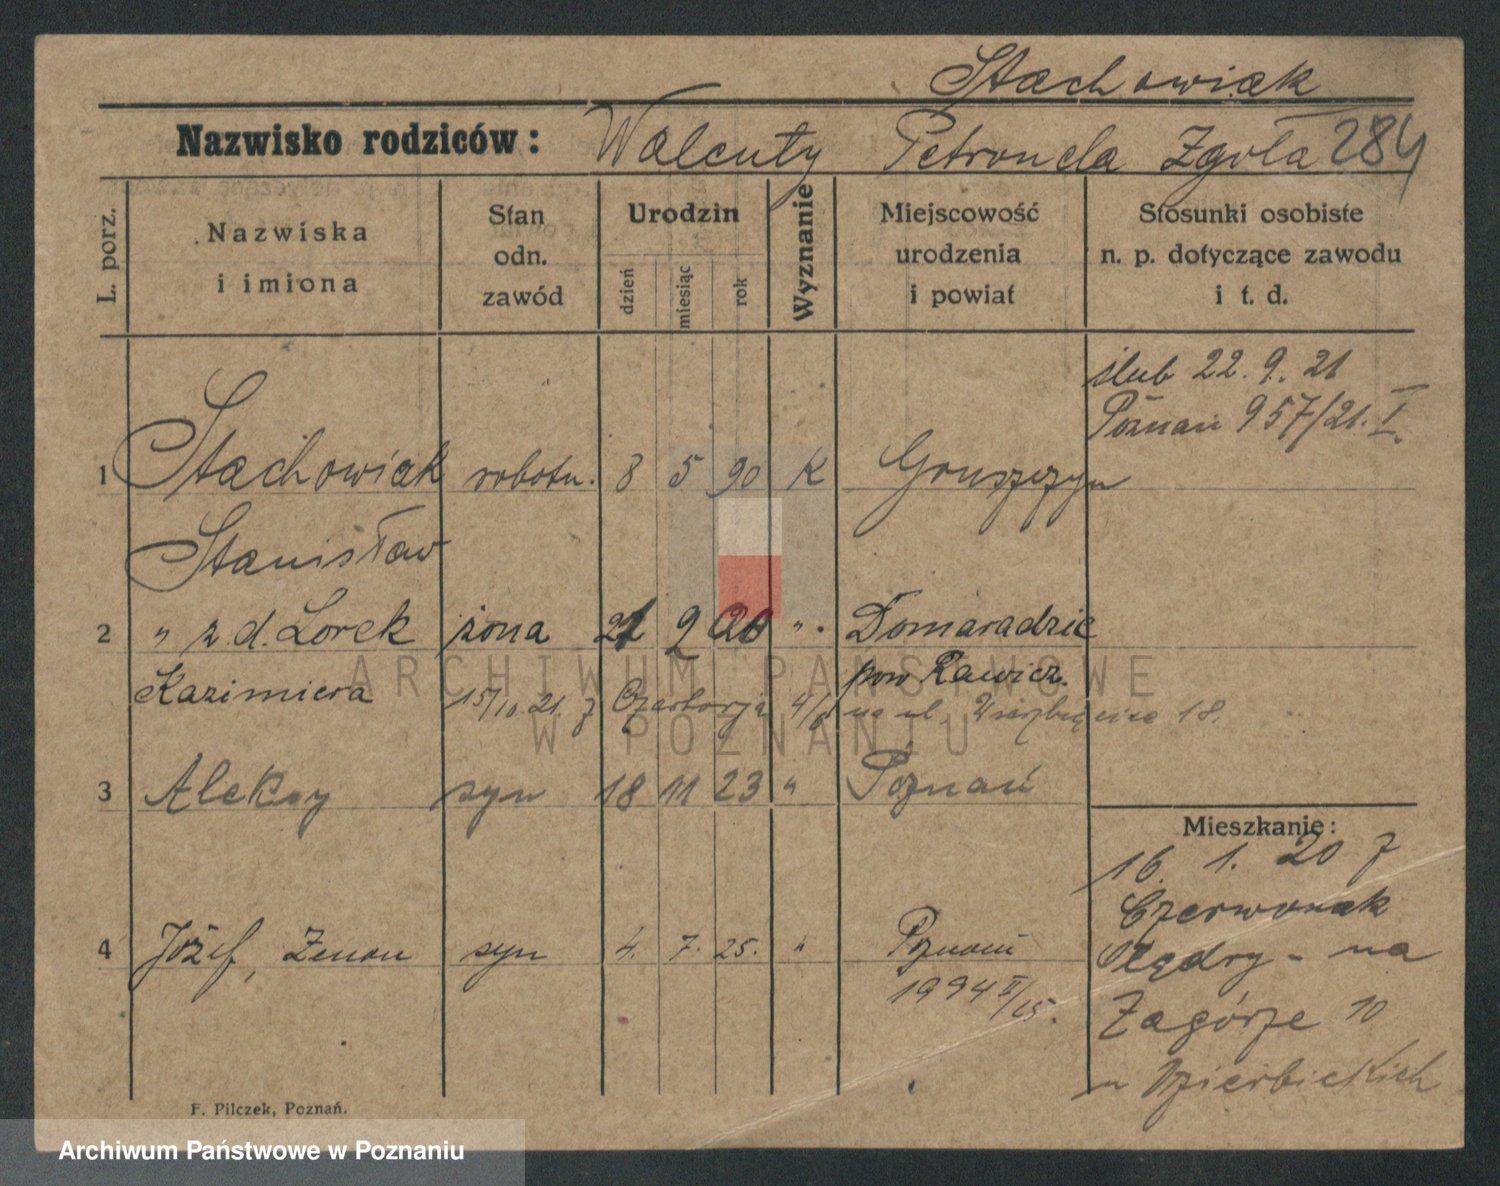 Stachowiak
Nazwisko rodziców: Walenty Petronela Zgoła 284
L. porz.
Nazwiska
i imiona
Stan
odn.
zawód
Urodzin
dzień
miesiąc
rok
Wyznanie
Miejscowość
urodzenia
i powiat
Stosunki osobiste
n. p. dotyczące zawodu
i t. d.
ślub 22. 9. 21
Poznań 957/21. I.
1 Stachowiak robotn. 8 5 90 K Gruszczyn
Stanisław
2 " z. d. Lorek żona 21 2 00 " Domaradzic
Kazimiera pow Rawicz.
15/10. 21. z na ul. 18.
3 Aleksy syn 18 11 23 " Poznań
Mieszkanie:
16. 1. 20 z
Czerwonak
4 Józef, Zenon syn 4. 7. 25. " Poznań
1994 II/25.
na
Zagórze 10
u
F. Pilczek, Poznań.
ARCHIWUM PAŃSTWOWE
W POZNANIU
Archiwum Państwowe w Poznaniu